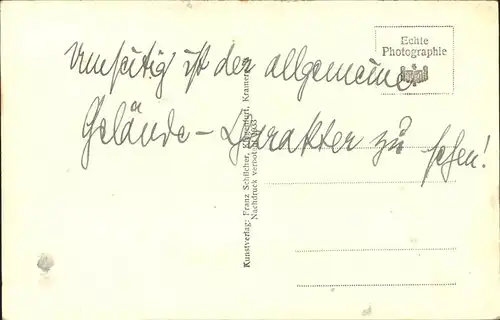 Echte
Photographie
Umseitig ist der allgemeine
Gelände-Charakter zu sehen!
Kunstverlag: Franz Schilcher, Klagenfurt,
Nachdruck verboten